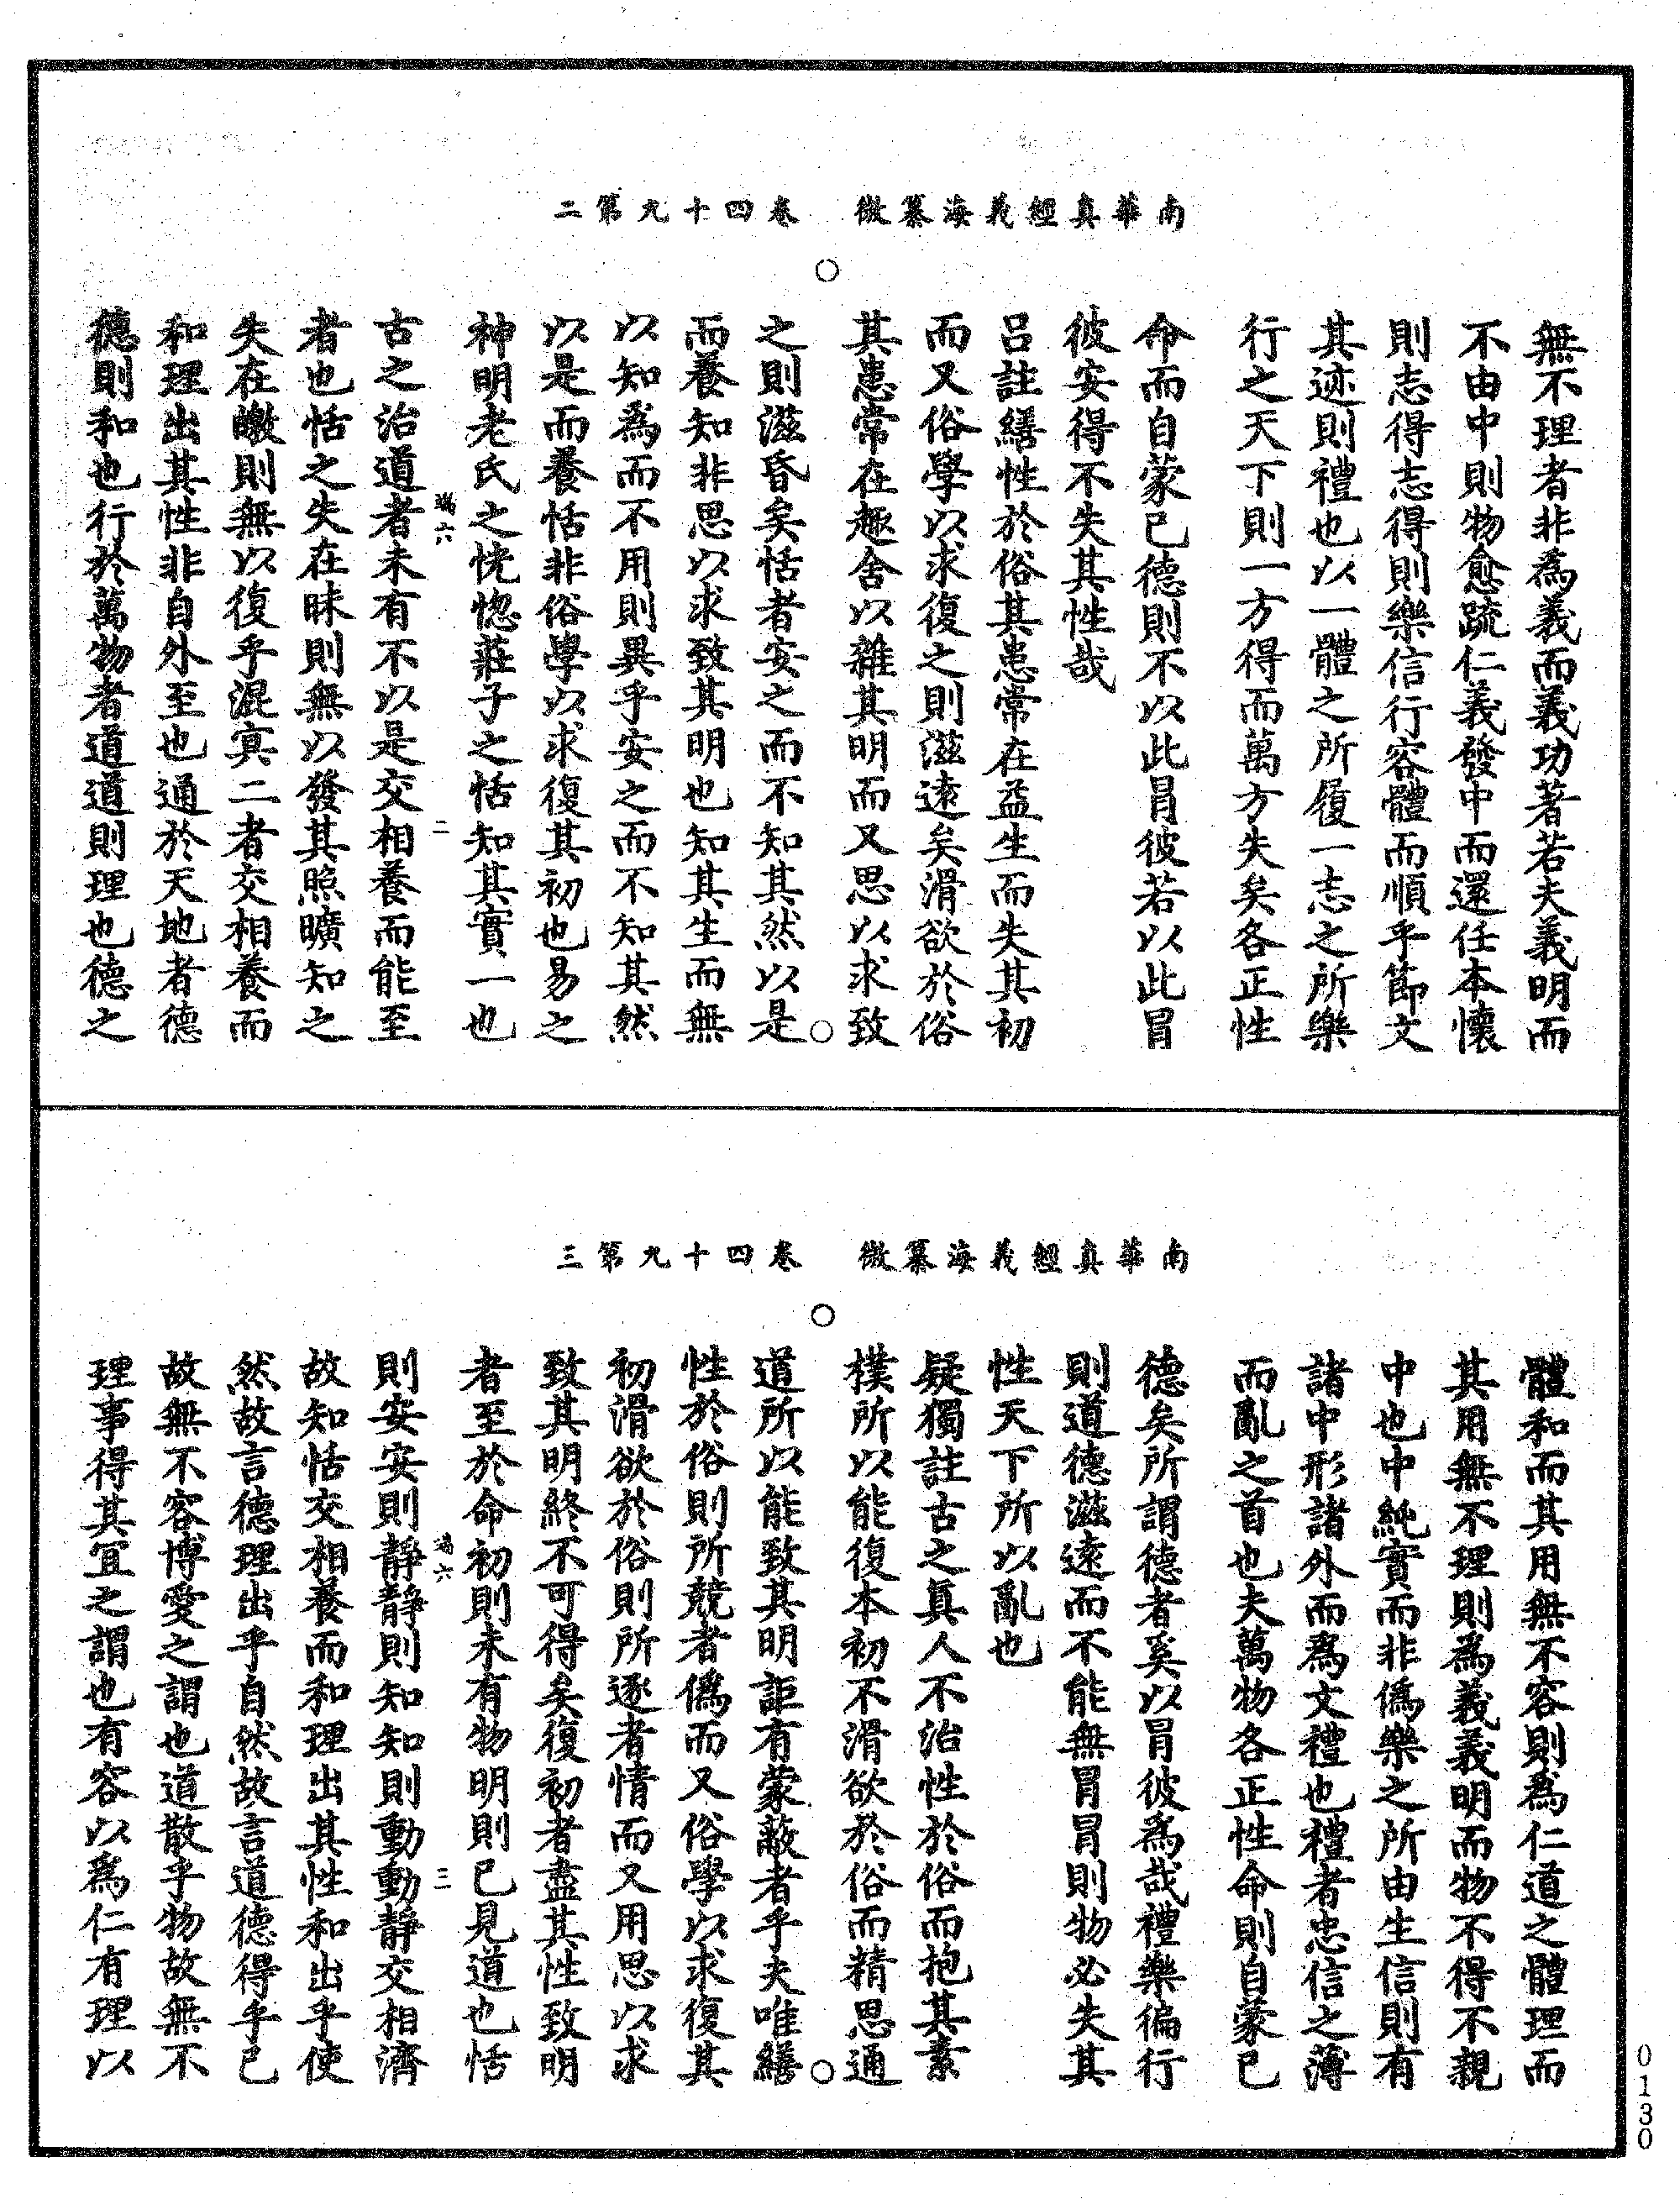 南華真經義海纂微　卷四十九第二
無不理者非為義而義功著若夫義明而
不由中則物愈疏仁義發中而還任本懷
則志得志得則樂信行容體而順乎節文
其迹則禮也以一體之所履一志之所樂
行之天下則一方得而萬方失矣各正性
命而自蒙已德則不以此冒彼若以此冒
彼安得不失其性哉
呂註繕性於俗其患常在益生而失其初
而又俗學以求復之則滋遠矣滑欲於俗
其患常在趣舍以雜其明而又思以求致
之則滋昏矣恬者安之而不知其然以是
而養知非思以求致其明也知其生而無
以知為而不用則異乎安之而不知其然
以是而養恬非俗學以求復其初也易之
神明老氏之恍惚莊子之恬知其實一也
六　二
古之治道者未有不以是交相養而能至
者也恬之失在昧則無以發其照曠知之
失在皦則無以復乎混冥二者交相養而
和理出其性非自外至也通於天地者德
德則和也行於萬物者道道則理也德之
南華真經義海纂微　卷四十九第三
體和而其用無不容則為仁道之體理而
其用無不理則為義義明而物不得不親
中也中純實而非偽樂之所由生信則有
諸中形諸外而為文禮也禮者忠信之薄
而亂之首也夫萬物各正性命則自蒙已
德矣所謂德者奚以冒彼為哉禮樂徧行
則道德滋遠而不能無冒冒則物必失其
性天下所以亂也
疑獨註古之真人不治性於俗而抱其素
樸所以能復本初不滑欲於俗而精思通
道所以能致其明詎有蒙蔽者乎夫唯繕
性於俗則所競者偽而又俗學以求復其
初滑欲於俗則所逐者情而又用思以求
致其明終不可得矣復初者盡其性致明
者至於命初則未有物明則已見道也恬
六　三
則安安則靜靜則知知則動動靜交相濟
故知恬交相養而和理出其性和出乎使
然故言德理出乎自然故言道德得乎已
故無不容博愛之謂也道散乎物故無不
理事得其宜之謂也有容以為仁有理以
0130